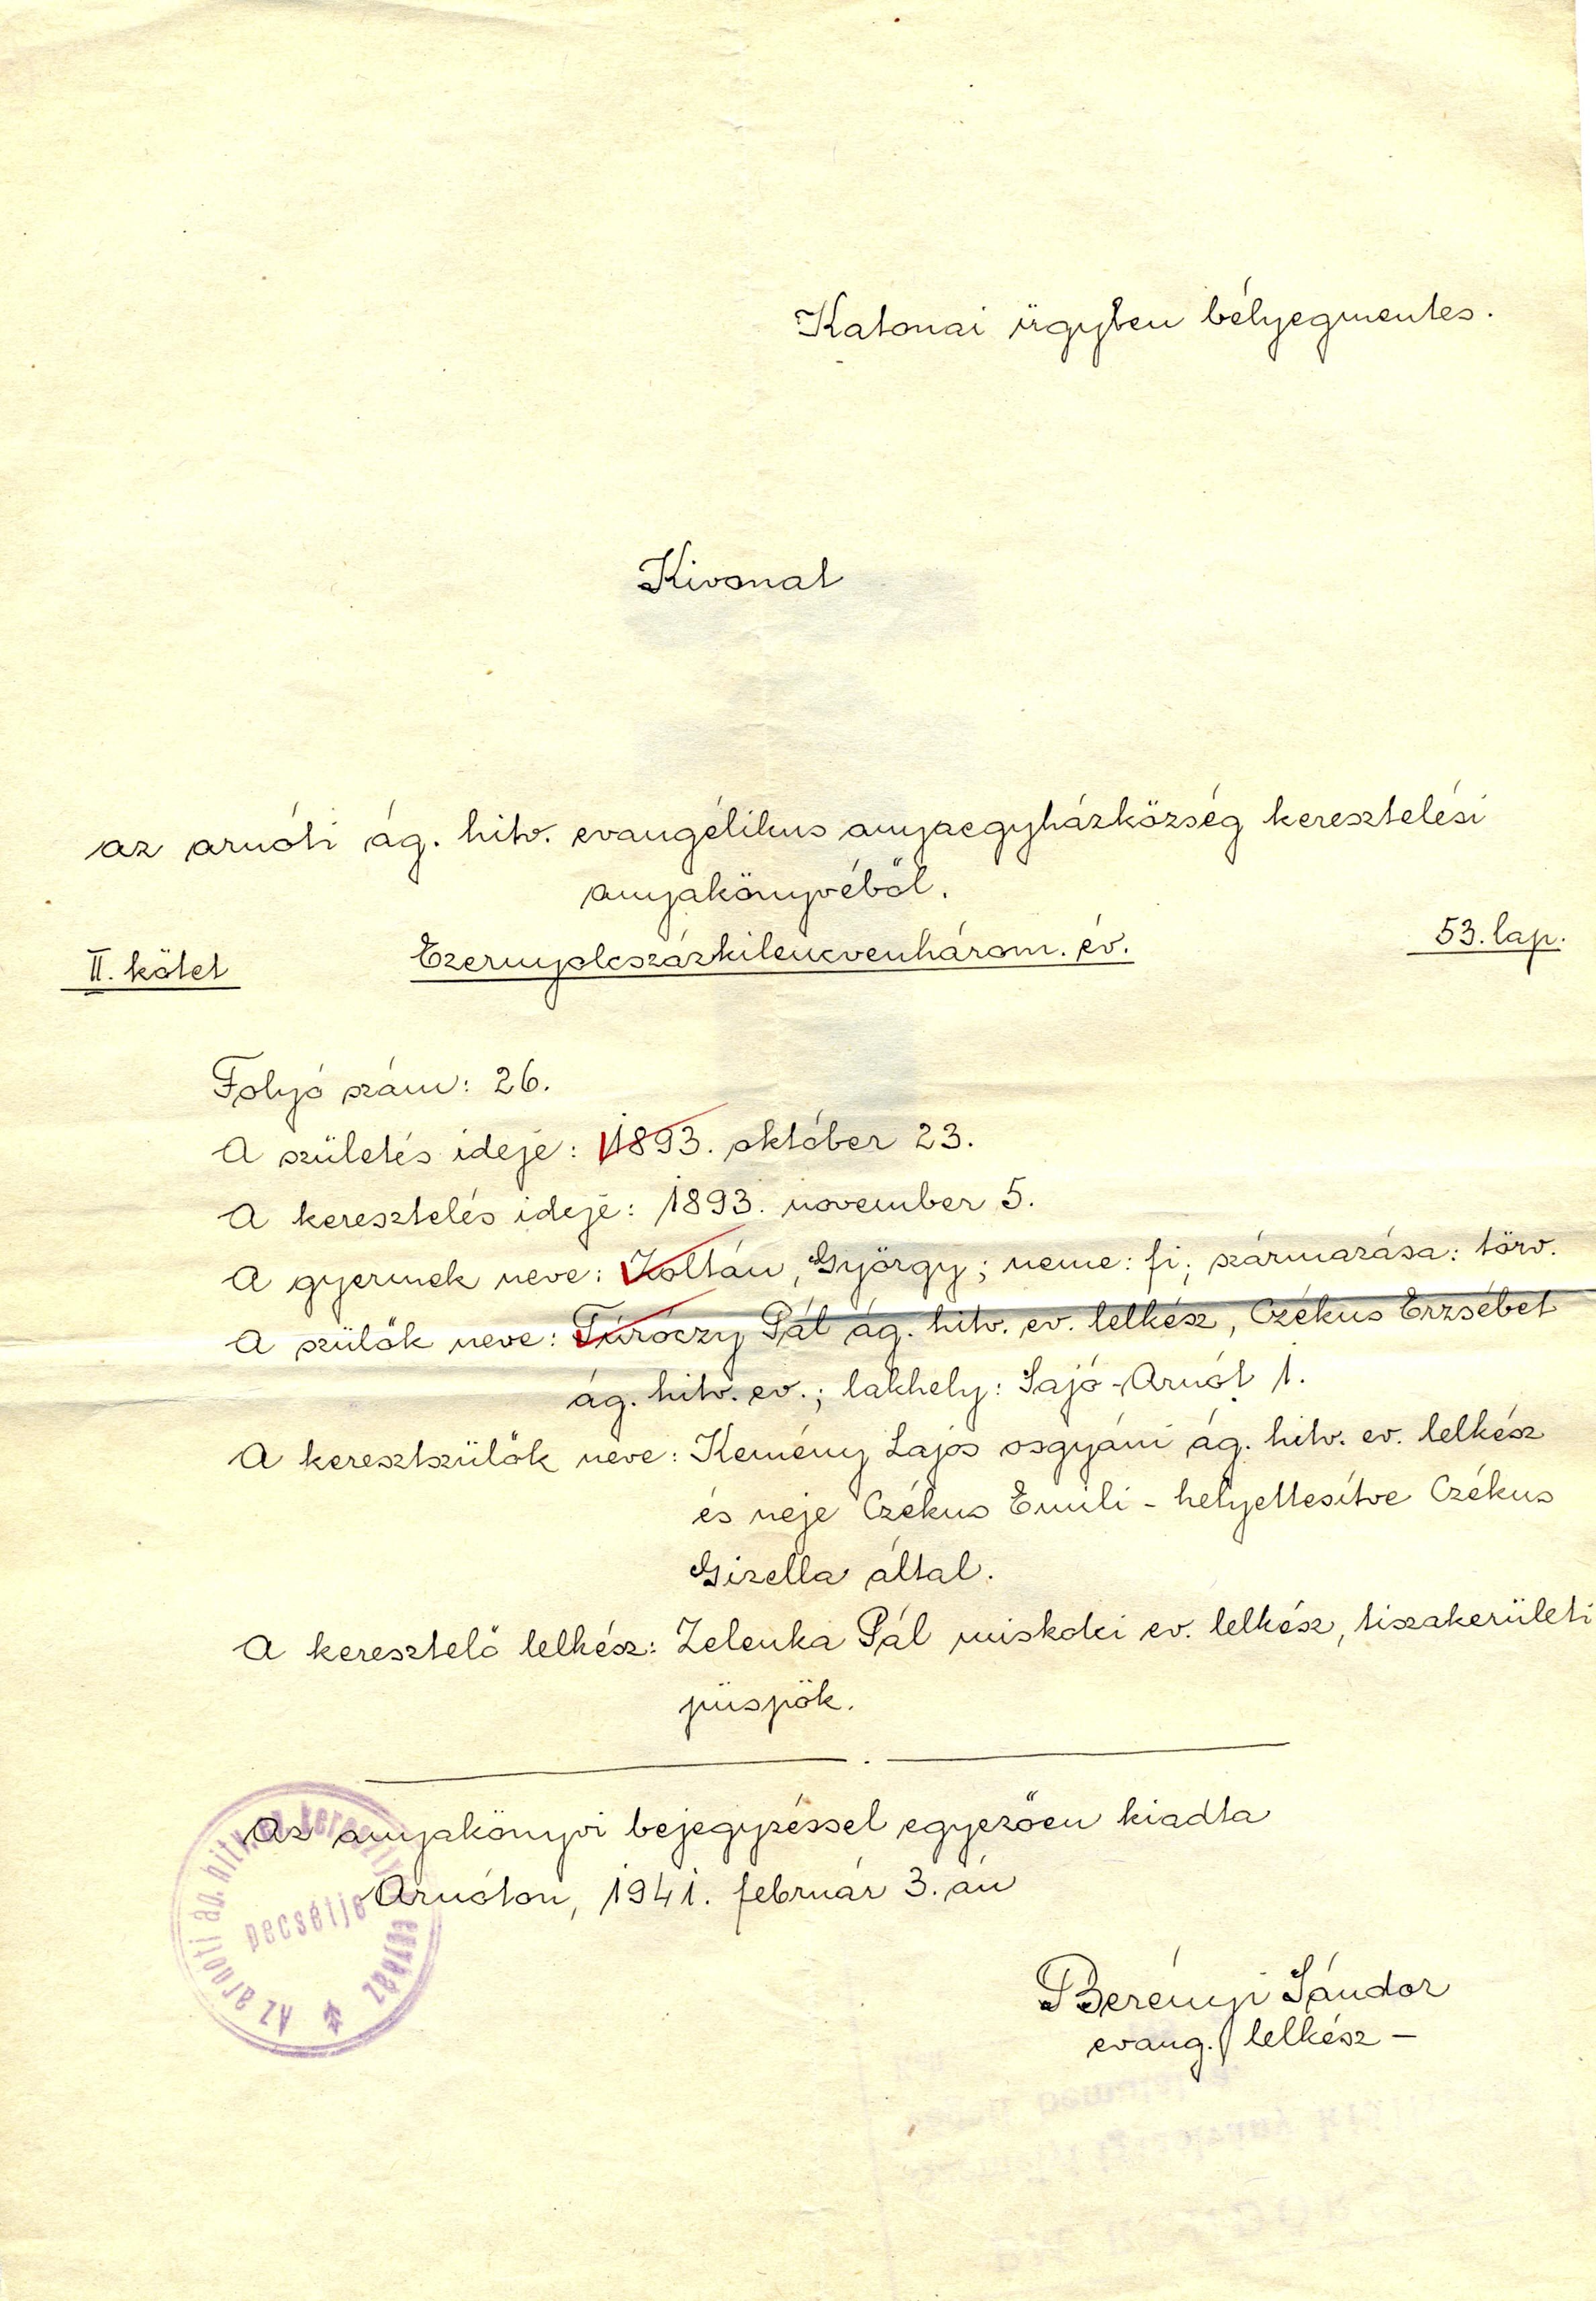 Katonai ügyben bélyegmentes.
Kivonat
az arnóti ág. hitv. evangélikus anyaegyházközség keresztelési
anyakönyvéből.
II. kötet Ezernyolcszázkilencvenhárom. év. 53. lap.
Folyó szám: 26.
A születés ideje: 1893. október 23.
A keresztelés ideje: 1893. november 5.
A gyermek neve: Zoltán, György; neme: fi; származása: törv.
A szülők neve: Túróczy Pál ág. hitv. ev. lelkész, Czékus Erzsébet
ág. hitv. ev.; lakhely: Sajó-Arnót 1.
A keresztszülők neve: Kemény Lajos osgyáni ág. hitv. ev. lelkész
és neje Czékus Emili - helyettesítve Czékus
Gizella által.
A keresztelő lelkész: Zelenka Pál miskolci ev. lelkész, tiszakerületi
püspök.
Az anyakönyvi bejegyzéssel egyezően kiadta
Arnóton, 1941. február 3.-án
Az arnoti ág. hitv. ev. keresztyén egyház
pecsétje
Berényi Sándor
evang. lelkész -